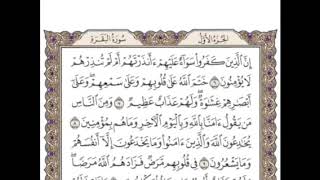 الجزء الأول سورة البقرة
إِنَّ الَّذِينَ كَفَرُوا سَوَاءٌ عَلَيْهِمْ ءَأَنذَرْتَهُمْ أَمْ لَمْ تُنذِرْهُمْ
لَا يُؤْمِنُونَ ٦ خَتَمَ اللَّهُ عَلَىٰ قُلُوبِهِمْ وَعَلَىٰ سَمْعِهِمْ وَعَلَىٰ
أَبْصَارِهِمْ غِشَاوَةٌ وَلَهُمْ عَذَابٌ عَظِيمٌ ٧ وَمِنَ النَّاسِ
مَن يَقُولُ ءَامَنَّا بِاللَّهِ وَبِالْيَوْمِ الْآخِرِ وَمَا هُم بِمُؤْمِنِينَ ٨
يُخَادِعُونَ اللَّهَ وَالَّذِينَ ءَامَنُوا وَمَا يَخْدَعُونَ إِلَّا أَنفُسَهُمْ
وَمَا يَشْعُرُونَ ٩ فِي قُلُوبِهِم مَّرَضٌ فَزَادَهُمُ اللَّهُ مَرَضًا